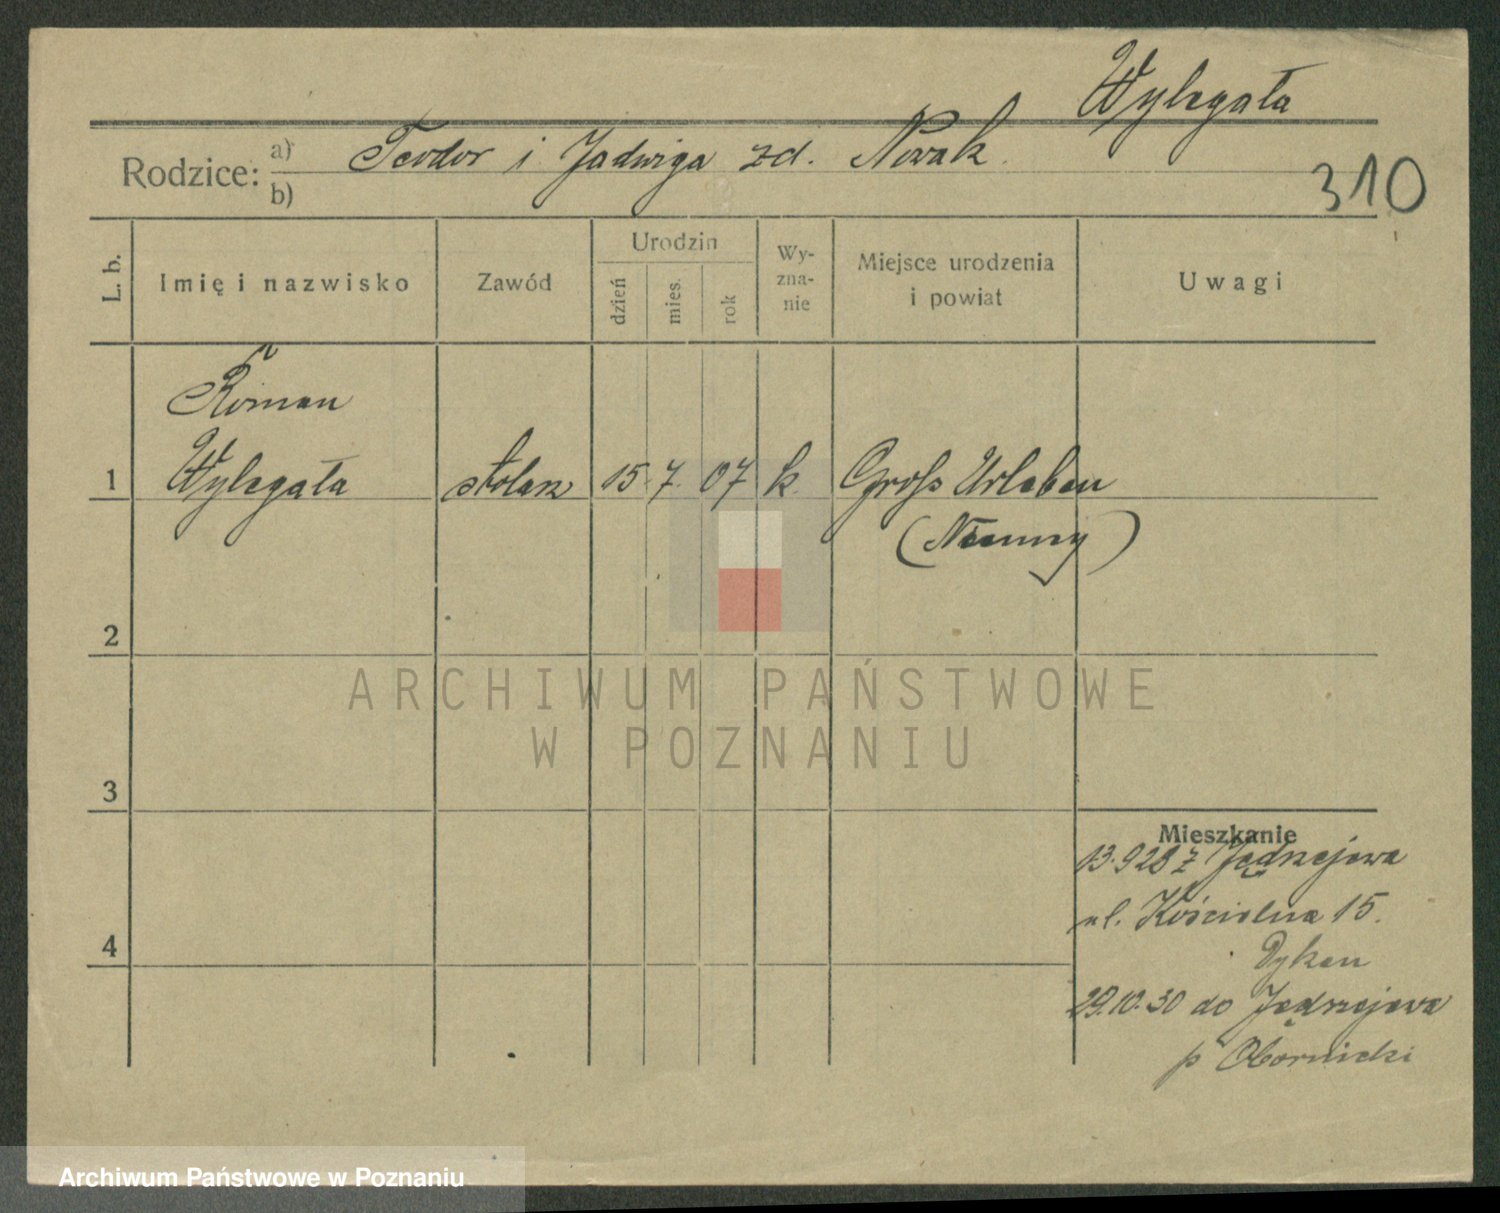 Wylegała
Rodzice: a) Teodor i Jadwiga zd. Nowak.
b)
310
L. b.
Imię i nazwisko
Zawód
Urodzin
dzień
mies.
rok
Wy-
zna-
nie
Miejsce urodzenia
i powiat
Uwagi
Roman
1 Wylegała stolarz 15. 7. 07 k. Groß Urleben
(Niemcy)
2
3
4
Mieszkanie
13.9 28 z Jędrzejewa
ul. Kościelna 15.
29.10.30 do Jędrzejewa
p Obornicki
ARCHIWUM PAŃSTWOWE
W POZNANIU
Archiwum Państwowe w Poznaniu